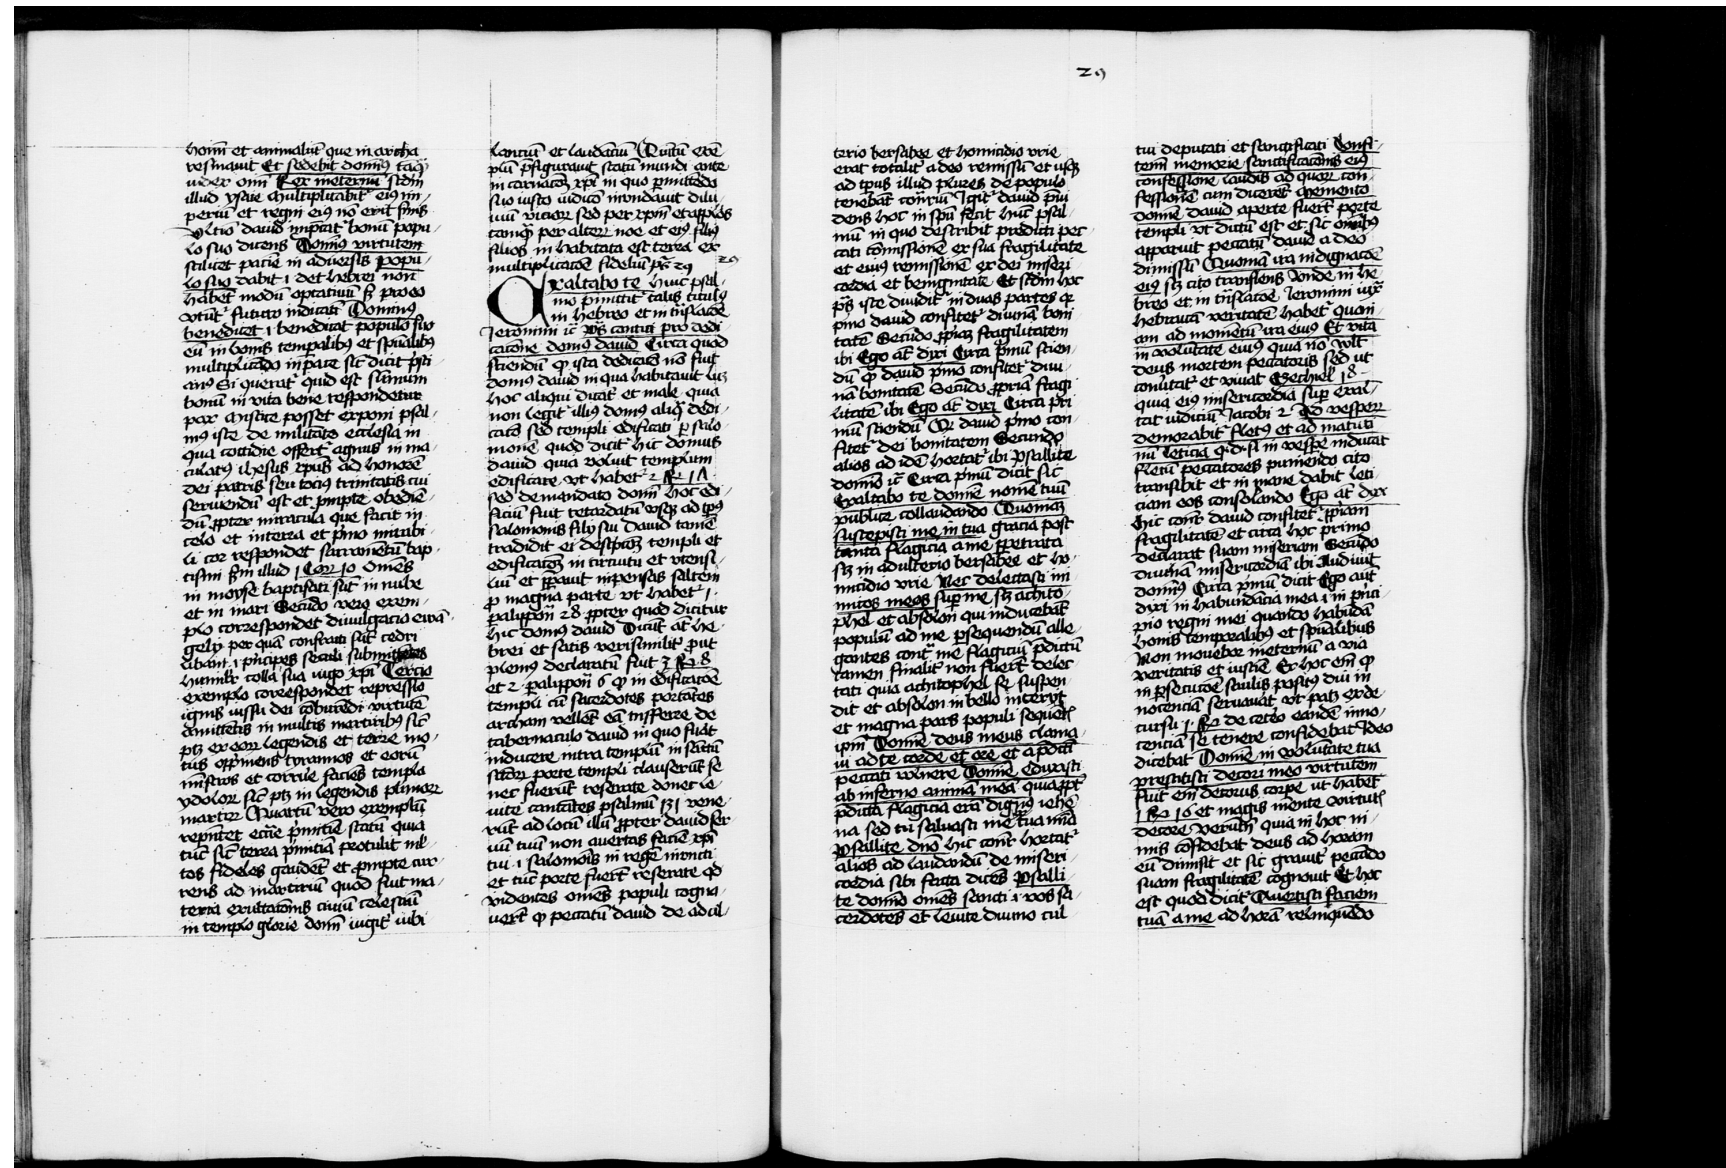 hoīm et animaliū que in archa
resīnauit Et sedebit domīnꝰ tāqꝫ
iudex oīm Rex ineternū scd̄m
illud ysaie multiplicabitᷣ eiꝰ im-
periū et regni eiꝰ nō erit finis
vltīo dauid imp̄catᷣ bonū popu-
lo suo dicens Domīnꝰ virtutem
scilicet pacie in aduersis popu-
lo suo dabit ı det hebrei non
habēt modū optatiuū sꝫ pro eo
vtūtᷣ futuro indicatī Dominꝰ
benedicet ı benedicat populo suo
eū in bonis temporalibꝰ et spūalibꝰ
multiplicādo in pace sic̄ dicit p̄sci
anꝰ Si queratᷣ quid est sūmum
bonū in vita bene respondetur
pax Mistice posset exponi psal-
mꝰ iste de militāte ecclesia in
qua cottidie offertᷣ agnus inma-
culatꝰ ihesus xpūs ad honorē
dei patris seu tociꝰ trinitatis cui
seruiendū est et prompte obediē-
dū propter miracula que facit in
celo et in terra et p̄mo mirabi-
li cor respondet sacramētū bap-
tismi scd̄m illud 1 Cor 10 omēs
in moyse baptisati sūt in nube
et in mari Secūdo vero exem-
plo correspondet diuulgacio ewā-
gely per quā confracti sūt cedri
libani ı principes seculi submittētes
humilit̄ colla sua iugo xp̄i Tercio
exemplo correspondet repressio
ignis iussu dei cōburēdi virtutē
amittētis in multis martiribꝰ sic̄
ptꝫ ex eorum legendis et terre mo-
tus opprimens tyrannos et eorū
mīstros et corrue faciēs templa
ydolorum sic̄ ptꝫ in legendis plurimorum
martirum Quartū vero exemplū
rep̄ntet ecc̄ie p̄mitie statū quia
tūc sic̄ terra p̄mitiā protulit mul-
tos fideles gaudēt et prompte cur-
rens ad martiriū quod fuit ma-
teria exultacōnis ciuiū celestiū
in templo glorie domī iugitᷣ iubi
lanciū et laudāciū Quītū exē-
plū p̄figurauit statū mundi ante
incarnacōꝫ xp̄i in quo p̄mittēdo
suo iusto iudicō inūdauit dilu-
uiū viciorum sed per xpm̄ et app̄los
tanqꝫ per alterū noe et eiꝰ filiꝰ
filios in habitata est terra ex
multiplicacōe fideliū ps̄ 29 29
Exaltabo te huic psal-
mo p̄mittit talis titulꝰ
in hebreo et in trāslacōe
Jeronimi ic̄ ps̄ cantici pro dedi-
cacione domus dauid Circa quod
sciendū qꝫ ista dedicacō nō fuit
domus dauid in qua habitauit licꝫ
hoc aliqui dicāt et male quia
non legit illiꝰ domus aliqꝫ dedi-
catō sed templi edificati per salo-
monē quod dicit hic domus
dauid quia voluit templum
edificare vt habetᷣ 2 R 17
sed de mandato domī hoc edi-
ficiū fuit retardatū vsqꝫ ad tp̄us
salomonis fily sui dauid tamē
tradidit ei descripcōꝫ templi et
edificacōꝫ in circuitu et vtensi-
liū et p̄parauit inpensas saltem
p̄ magna parte vt habetᷣ 1
paralippon̄ 28 propter quod dicitur
hic domꝰ dauid Dicūt at̄ he-
brei et satis verisimilitᷣ put
plenꝰ declaratū fuit 3 R 8
et 2 paralippon̄ 6 qꝫ in edificacōe
templi cū sacerdotes portātes
archam vellēt eā trāsferre de
tabernaculo dauid in quo fuāt
inducere intra templū in sācta
sāctorum porte templi clauserūt se
nec fuerūt reserate donec le-
uite cantātes psalmū 131 vene-
rūt ad locū illū propter dauid ser
uū tuū non auertas faciē xp̄i
tui ı salomōis in regē inuncti
et tūc porte fuerūt reserate qd̄
videntes omēs populi cogna-
uerūt qꝫ peccatū dauid de adul-
29
terio bersabee et homicidio vrie
erat totalitᷣ a deo remissū et vsqꝫ
ad tp̄us illud plures de populo
tenebāt contriū Jgitᷣ dauid p̄ui
dens hoc in spū fecit hūc psal-
mū in quo describit predicti pec-
cati cōmissionē ex sua fragilitate
et eiꝰ remissionē ex dei miseri
cordia et benignitate Et scd̄m hoc
ps̄ iste diuidit in duas partes qꝫ
p̄mo dauid confitetᷣ diuinā boni-
tatē Secūdo propriā fragilitatem
ibi Ego at̄ dixi Circa p̄mū scien-
dū qꝫ dauid p̄mo confitetᷣ diui-
nā bonitatē Secūdo propriā fragi
litatē ibi Ego at̄ dixi Circa pri
mū sciendū Qꝫ dauid p̄mo con-
fitetᷣ dei bonitatem Secundo
alios ad idē hortatᷣ ibi Psallite
domīo ic̄ Circa p̄mū dicit sic
Exaltabo te domīe nomē tuū
publice collaudando Quoniaꝫ
suscepisti me in tua gracia post
tanta flagicia a me perpetrata
sꝫ in adulterio bersabee et ho-
micidio vrie Nec delectasti ini
micos meos super me sꝫ achito-
phel et absolon qui inducebāt
populū ad me persequendū alle-
gantes contᷣ me flagiciū p̄dictū
tamen finalitᷣ non fuerūt delec
tati quia achitophel se suspen
dit et absolon in bello interyt
et magna pars populi sequētis
ipm̄ Domīe deus meus clama-
ui ad te corde et ore et a p̄dicti
peccati vulnere Domīe eduxisti
ab inferno animā meā quia propter
p̄dicta flagicia erā dignꝰ iehē
na sed tu saluasti me per tua mīa
Psallite dn̄o hic cont̄ hortatᷣ
alios ad laudandū de miseri-
cordia sibi facta dicēs Psalli-
te domīo omēs sancti ı vos sa-
cerdotes et leuite diuino cul
tui deputati et sanctificati Confi-
temī memorie sanctificacōnis eiꝰ
confessione laudis ad quorum con-
fessionē cum diceret Memento
domīe dauid aperte fuerūt porte
templi vt dictū est et sic omībus
apparuit peccatū dauid a deo
dimissū Quoniā ira in dignacōe
eiꝰ sꝫ cito transiens Vnde in he
breo et in trāslacōe Jeronimi iuxta
hebraicā veritatē habetᷣ quoni-
am ad momētū ira eius Et vita
in volūtate eius quia nō vult
deus mortem peccatoris sed ut
conūtatᷣ et viuat Ezechiel 18
quia eiꝰ misericordia super exal-
tat iudiciū Jacobi 2 Ad vesperum
demorabitᷣ fletꝰ et ad matuti
nū leticia q.d. si in vespere inducat
fletū peccatores puniendo cito
transibit et in mane dabit leti-
ciam eos consolando Ego at̄ dixi
hic cont̄ dauid confitetᷣ propriam
fragilitatē et circa hoc primo
declarat suam miseriam Secūdo
diuinā misericordiā ibi Audiuit
domīnꝰ Circa p̄mū dicit Ego aūt
dixi in habundācia mea ı in prici-
pio regni mei quando habūdā
bonis temporalibꝰ et spūalibus
Non mouebor ineternū a via
veritatis et iusticie Ex hoc em̄ qꝫ
in persecucōe saulis positꝰ diu in
nocenciā seruauāt vt patꝫ ex de
cursu 1 R de cetero eandē inno-
cenciā se tenere confidebat Ideo
dicebat Domīe in volūtate tua
prestitisti decori meo virtutem
fuit em̄ decorus corpore ut habetᷣ
1 R 16 et magis mente virtutis
decore verūtn̄ quia in hoc ni-
mis cōfidebat deus ad horam
eū dimisit et sic grauitᷣ peccādo
suam fragilitatē cognouit Et hoc
est quod dicit Auertisti faciem
tuā a me ad horā relinquēdo